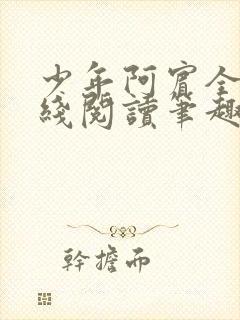 少年阿賓全
綫閱讀筆趣
幹擔而